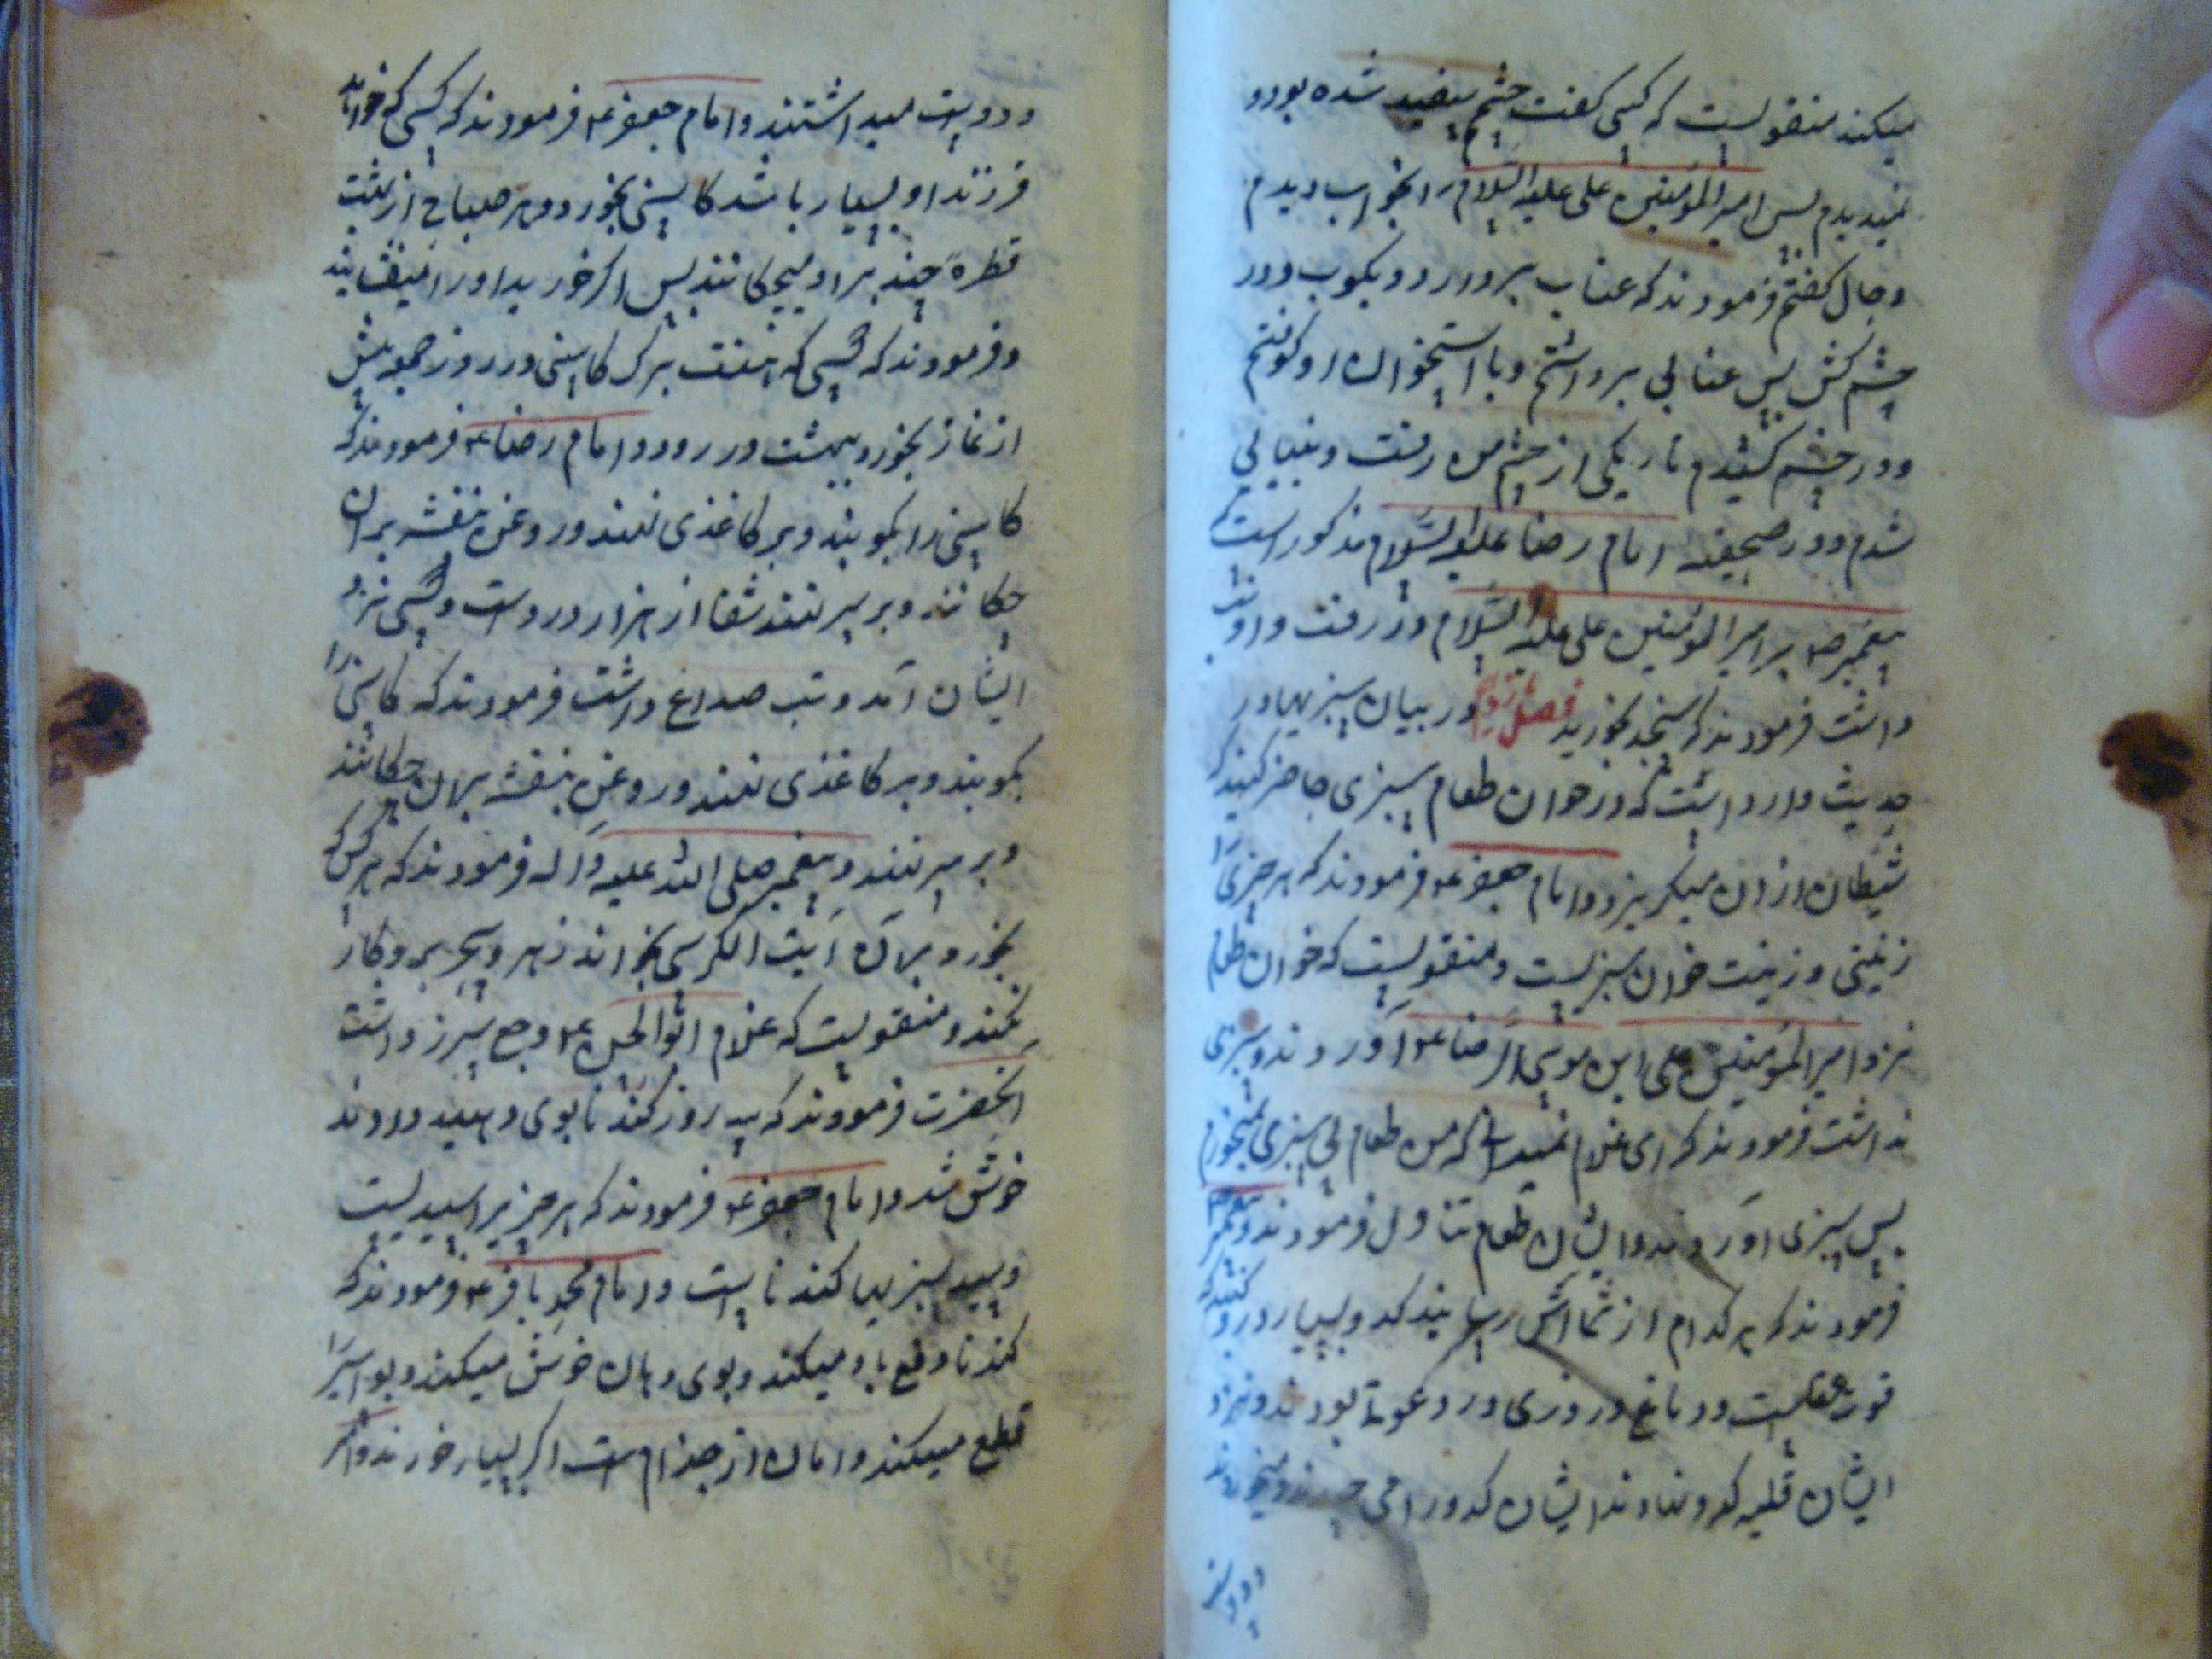 میکند منقولست که کسی گفت چشم سفید شده بود و
نمیدیدم پس امیرالمؤمنین علی علیه السلام را بخواب دیدم
و حال گفتم فرمودند که عناب بردار و بکوب و در
چشم کش پس عنابی برداشتم و با استخوان او کوفتم
و در چشم کشیدم تاریکی از چشم من رفت و بینایی
شدم و در صحیفه امام رضا علیه السلام مذکور است که
پیغمبر ص بر امیرالمؤمنین علی علیه السلام در رفت و او تب
داشت فرمودند که سنجد بخورید فصل در بیان سبزیها در
حدیث وارد است که در خوان طعام سبزی حاضر کنید که
شیطان از آن میگریزد و امام جعفر ع فرمودند که هر چیزی را
زینتی و زینت خوان سبزیست و منقولست که خوان طعام
نزد امیرالمؤمنین علی ابن موسی الرضا ع آوردند و سبزی
نداشت فرمودند که ای غلام نمیدانی که من طعام بی سبزی نمیخورم
پس سبزی آوردند و ایشان طعام تناول فرمودند و پیغمبر ص
فرمودند که هر کدام از شما آش رسانید کدو بسیار در او کنید که
قوت عقلست و دماغ و روزی در دعوة بودند و نزد
ایشان قلیه کدو نهادند ایشان کدو را می چیدند و میخوردند
و دوست
و دوست میداشتند و امام جعفر ع فرمودند که کسی که خواهد
فرزند او بسیار باشد کاسنی بخورد و هر صباح از بهشت
قطره چند بر او میچکانند پس اگر خورید او را میفشانید
و فرمودند که کسی که هفت برگ کاسنی در روز جمعه پیش
از نماز بخورد بهشت در رود و امام رضا ع فرمودند که
کاسنی را بکوبند و بر کاغذی نهند و روغن بنفشه بر آن
چکانند و بر سر نهند شفا از هزار درد است و کسی نزد
ایشان آمد و تب صداع داشت فرمودند که کاسنی را
بکوبند و بر کاغذی نهند و روغن بنفشه بر آن چکانند
و بر سر نهند و پیغمبر صلی الله علیه و آله فرمودند که هر کس که
بخورد بر آن آیت الکرسی بخواند زهر و سحر بر او کار
نکند و منقولست که غلام ابوالحسن ع وجع سپرز داشت
آنحضرت فرمودند که سه روز گندنا بوی دهید دادند
خوش شد و امام جعفر ع فرمودند که هر چیز را سیدیست
و سید سبزیها گندنا است و امام محمد باقر ع فرمودند که
گندنا دفع باد میکند و بوی دهان خوش میکند و بواسیر را
قطع میکند و امان از جذام است اگر بسیار خورند و اکثر